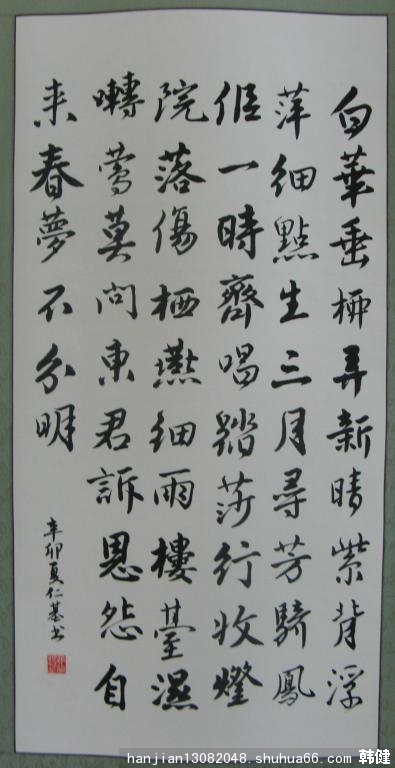 白華垂柳弄新晴紫背浮
萍細點生三月尋芳騎鳳
侣一時齊唱踏莎行收燈
院落傷栖燕細雨樓臺濕
囀鶯莫問東君訴恩怨自
来春夢不分明
辛卯夏仁基书
hanjian13082048.shuhua66.com 韩健